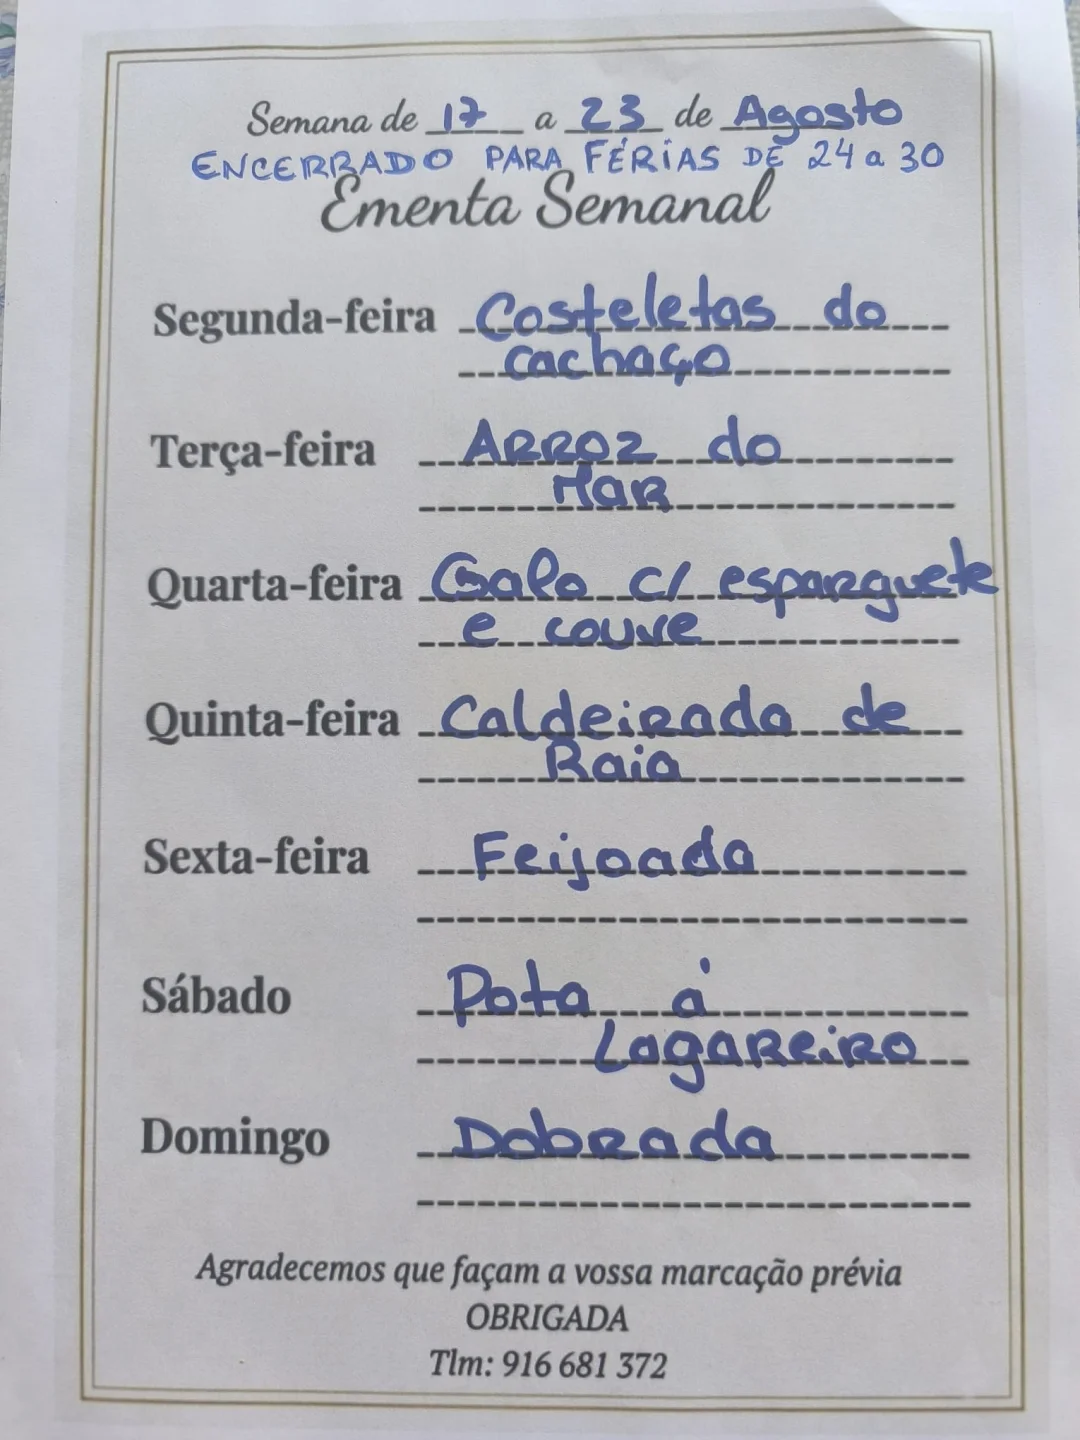 Semana de 17 a 23 de Agosto
ENCERRADO PARA FÉRIAS DE 24 a 30
Ementa Semanal
Segunda-feira Costeletas do
cachaço
Terça-feira ARROZ do
MAR
Quarta-feira Galo c/ esparguete
e couve
Quinta-feira Caldeirada de
Raia
Sexta-feira Feijoada
Sábado Pota á
Lagareiro
Domingo Dobrada
Agradecemos que façam a vossa marcação prévia
OBRIGADA
Tlm: 916 681 372